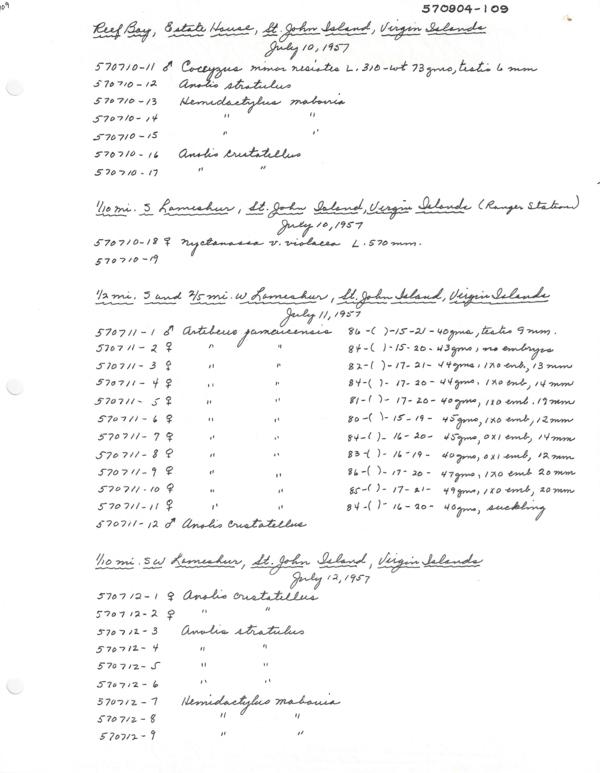 109
570904-109
Reef Bay, Estate House, St. John Island, Virgin Islands
July 10, 1957
570710-11 ♂ Coccyzus minor nesiotes L. 310-wt 73gms, testis 6 mm
570710-12 Anolis stratulus
570710-13 Hemidactylus mabouia
570710-14 " "
570710-15 " "
570710-16 Anolis cristatellus
570710-17 " "
1/10 mi. S Lameshur, St. John Island, Virgin Islands (Ranger Station)
July 10, 1957
570710-18 ♀ Nyctanassa v. violacea L. 570mm.
570710-19
1/2 mi. S and 2/5 mi. W Lameshur, St. John Island, Virgin Islands
July 11, 1957
570711-1 ♂ Artibeus jamaicensis 86-( )-15-21-40gms, testis 9 mm.
570711-2 ♀ " " 84-( )-15-20-43gms, no embryos
570711-3 ♀ " " 82-( )-17-21-44gms, 1x0 emb., 13 mm
570711-4 ♀ " " 84-( )-17-20-44gms, 1x0 emb, 14 mm
570711-5 ♀ " " 81-( )-17-20-40gms, 1x0 emb. 19mm
570711-6 ♀ " " 80-( )-15-19-45gms, 1x0 emb, 12mm
570711-7 ♀ " " 84-( )-16-20-45gms, 0x1 emb, 14mm
570711-8 ♀ " " 83-( )-16-19-40gms, 0x1 emb, 12 mm
570711-9 ♀ " " 86-( )-17-20-47gms, 1x0 emb 20mm
570711-10 ♀ " " 85-( )-17-21-49gms, 1x0 emb, 20mm
570711-11 ♀ " " 84-( )-16-20-40gms, suckling
570711-12 ♂ Anolis cristatellus
1/10 mi. SW Lameshur, St. John Island, Virgin Islands
July 12, 1957
570712-1 ♀ Anolis cristatellus
570712-2 ♀ " "
570712-3 Anolis stratulus
570712-4 " "
570712-5 " "
570712-6 " "
570712-7 Hemidactylus mabouia
570712-8 " "
570712-9 " "